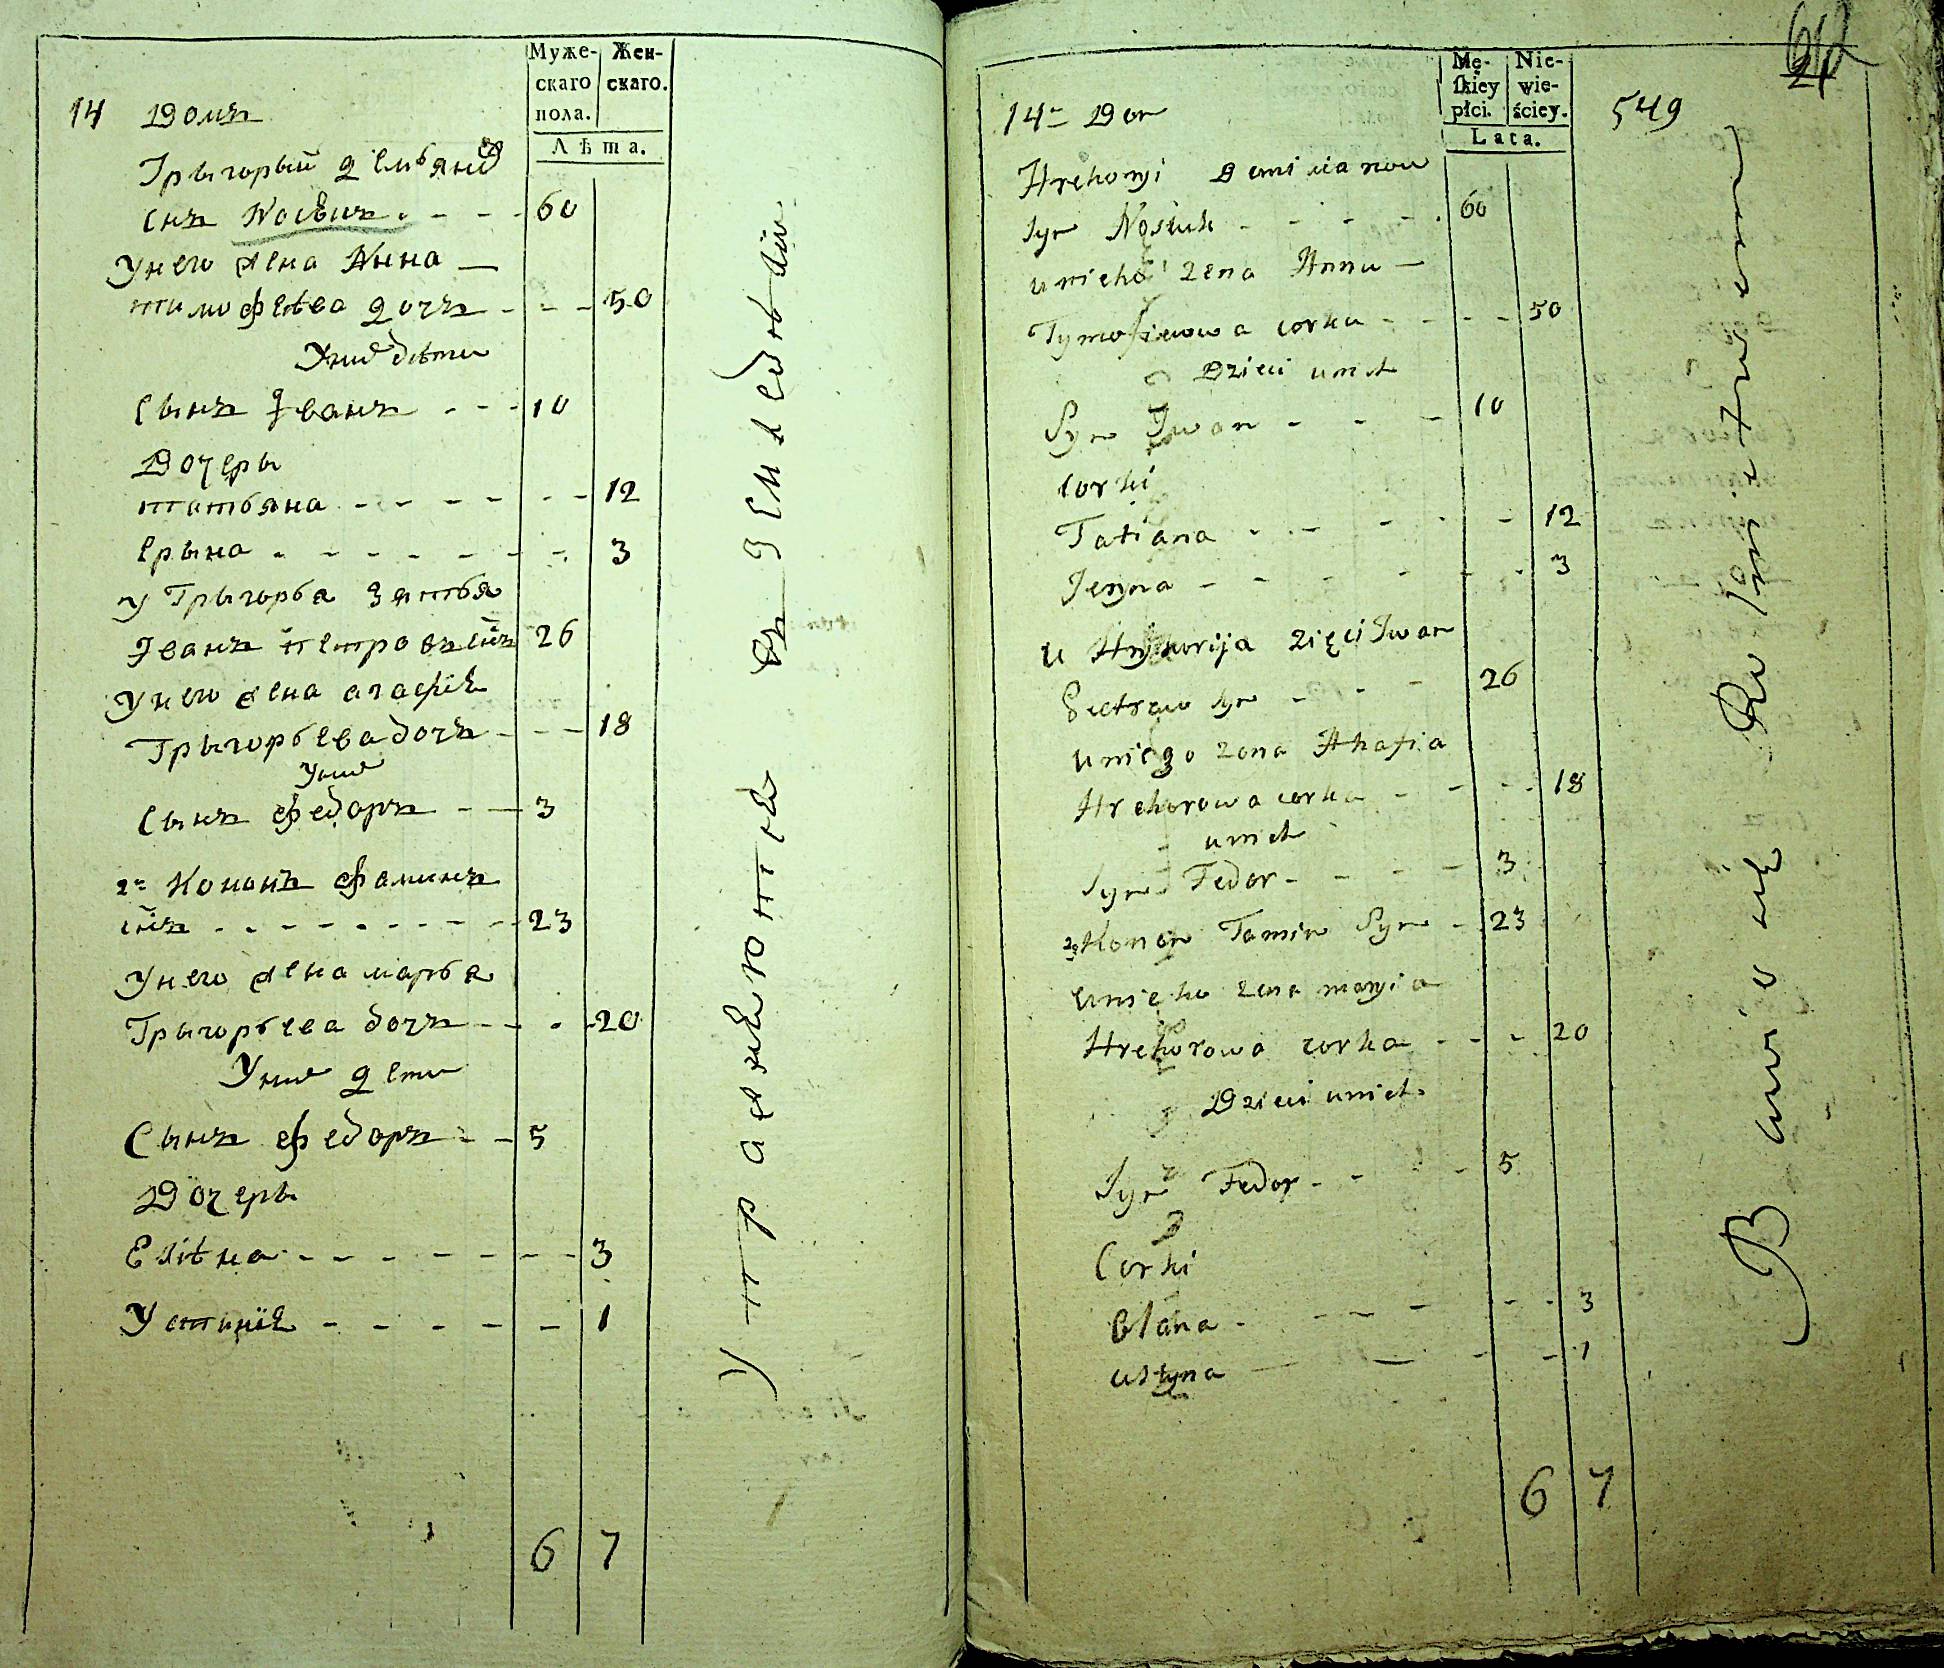 Муже-
скаго
пола.
Жен-
скаго.
Лѣта.
14 Домъ
Грыгорый Демьянов
снъ Носѣкъ 60
У него жена Анна
тимофѣева дочъ 50
У них дѣти
Сынъ Iванъ 10
Дочеры
татьяна 12
Ерына 3
у Грыгорья зятья
Iванъ петровъ снъ 26
У него жена агафiя
Грыгорьева дочъ 18
У них
Сынъ федоръ 3
2е Кононъ фоминъ
снъ 23
У него жена марья
Грыгорьева дочъ 20
У них дети
Сынъ федоръ 5
Дочеры
Елѣна 3
Устинiя 1
6 7
упражняются в земледелии
Mę-
skiey
płci.
Nie-
wie-
ściey.
Lata.
549
14e Dom
Hrehoryi Demianow
syn Nosiuk 60
u nieho żena Anna
Tymofiejewa corka 50
Dzieci u nich
Syn Iwan 10
Corki
Tatiana 12
Jeryna 3
U Hryhorija zięci Iwan
Pietrow syn 26
u niego żona Ahafia
Hrehorowa corka 18
u nich
Syn Fedor 3
2e Konon Fomin Syn 23
u nieho żena maryia
Hrehorowa corka 20
Dzieci u nich
Syn Fedor 5
Corki
Olana 3
Ustyna 1
6 7
Bawią się Rolnictwem